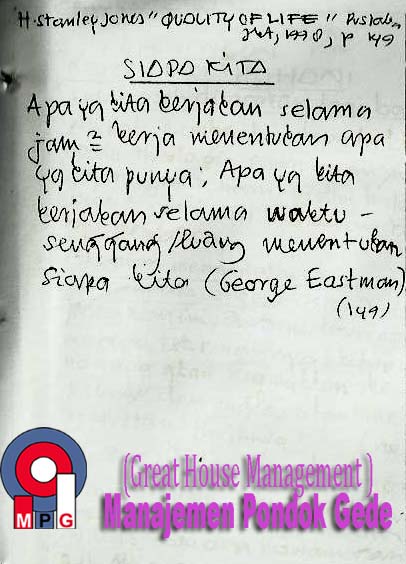 H. Stanley Jones "QUALITY OF LIFE" Pustaka,
1998, p 149
SIAPA KITA
Apa yg kita kerjakan selama
jam = kerja menentukan apa
yg kita punya; Apa yg kita
kerjakan selama waktu -
senggang/luang menentukan
siapa kita (George Eastman)
(149)
(Great House Management )
MPG
Manajemen Pondok Gede